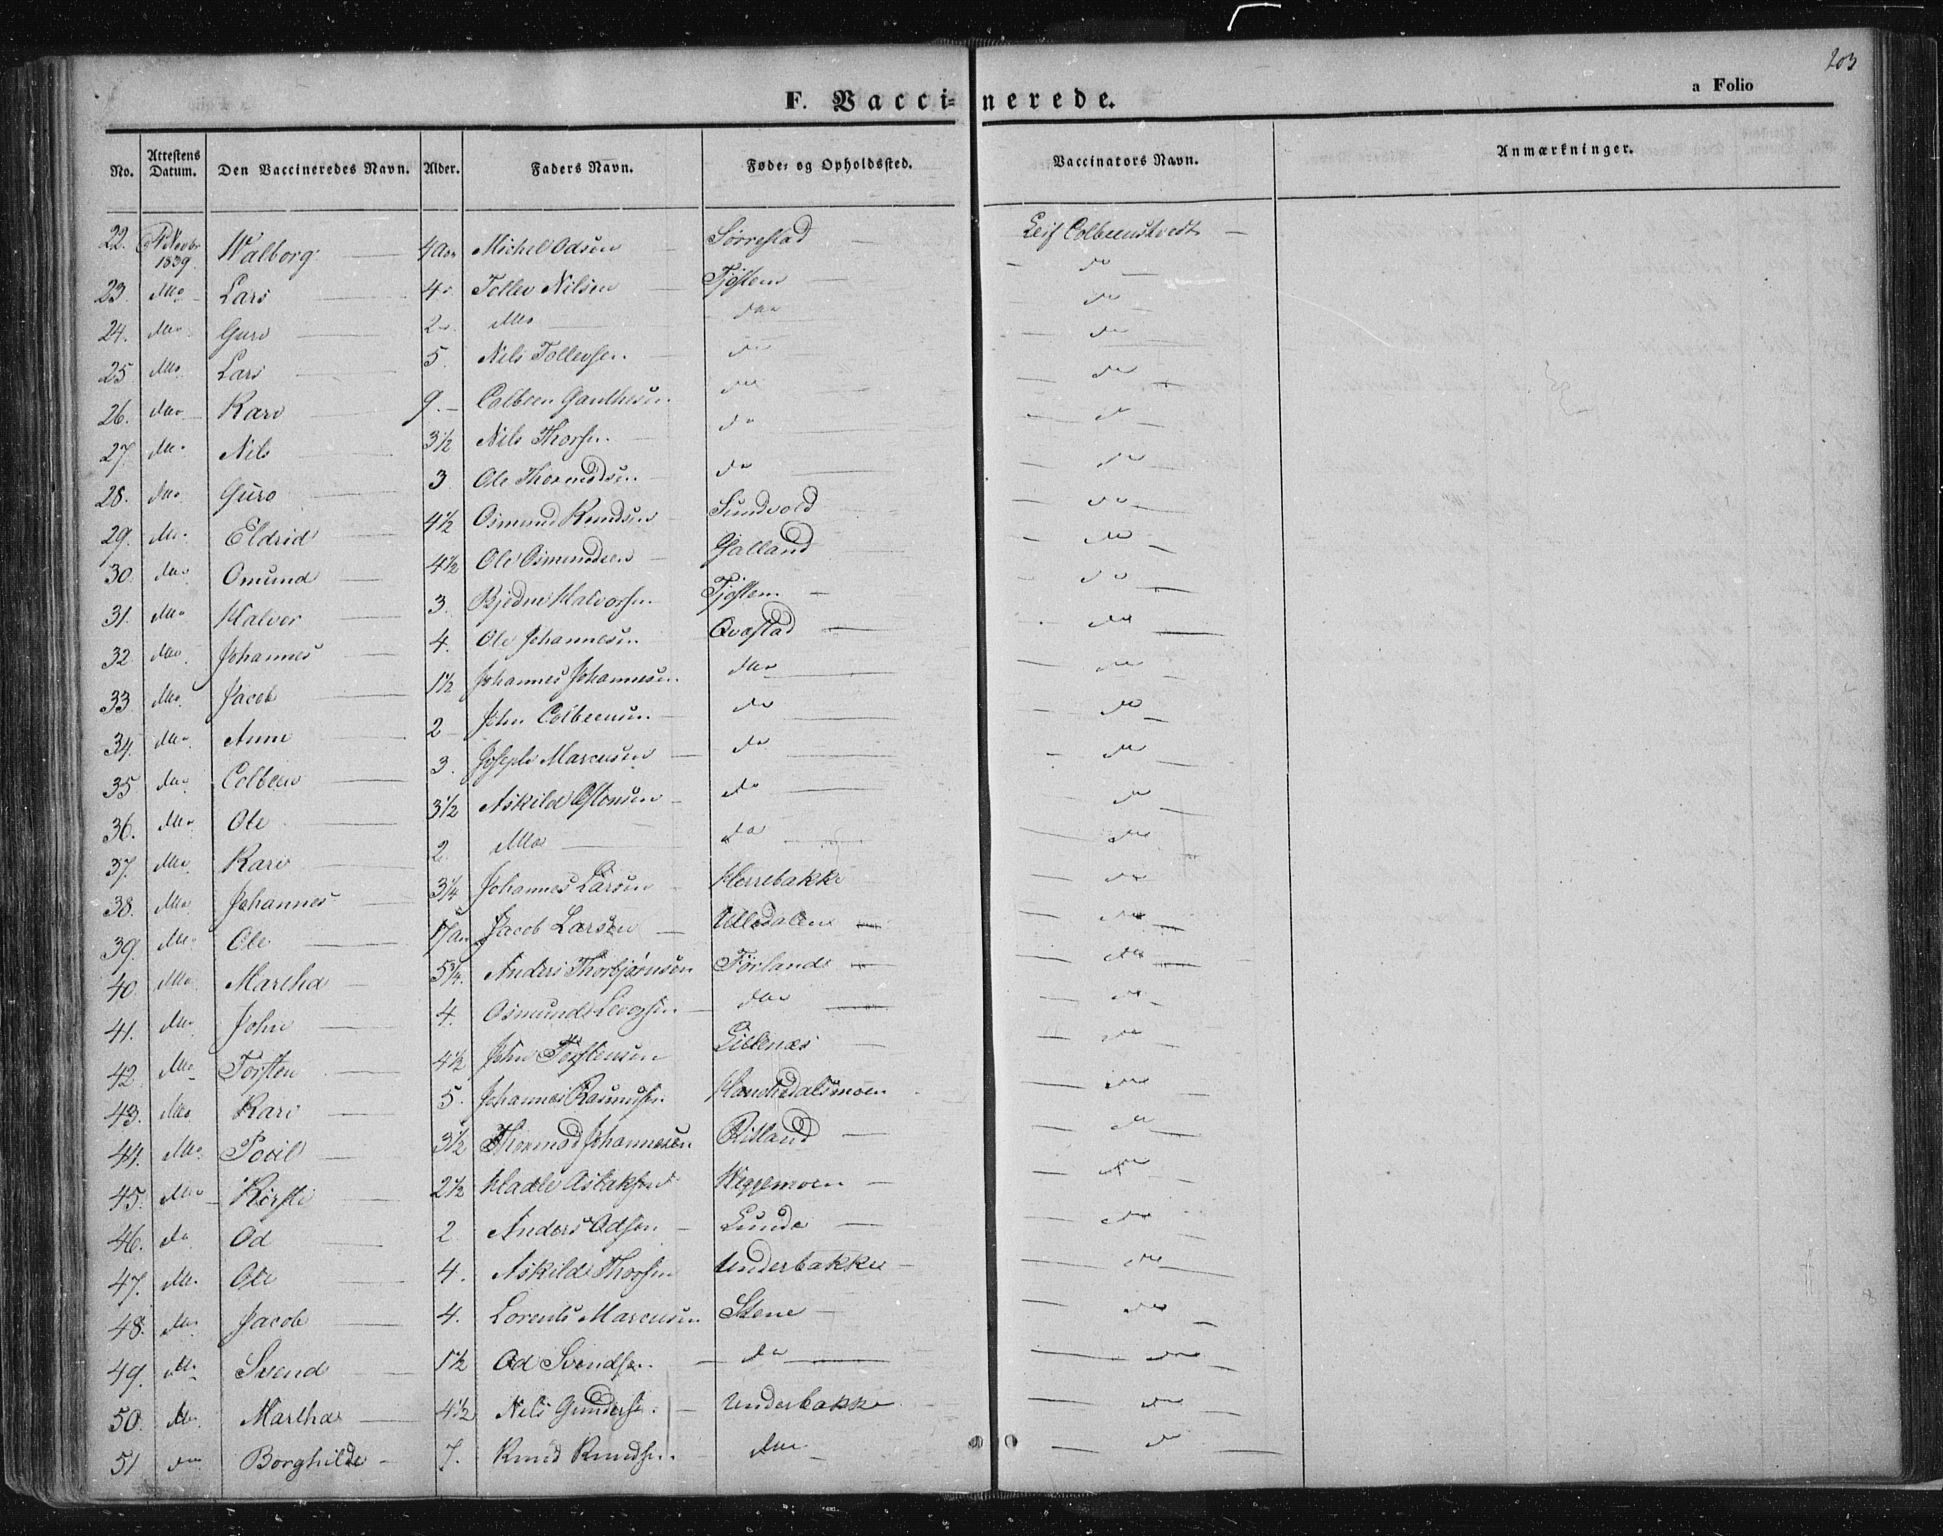 203
F. Vaccinerede. a Folio
No. Attestens Datum. Den Vaccineredes Navn. Alder. Faders Navn. Føde= og Opholdssted. Vaccinators Navn. Anmærkninger.
22. Novbr 1839. Walborg 4 Michel Odsen Sørrestad Leif Colbeenstvedt
23. do Lars 4 Tollev Nilsen Tjøsten do
24. do Guro 2 do do do
25 do Lars 5. Nils Tollevsen. do do
26. do Kari 9. Colbeen Gunthesen do do
27. do Nils 3½ Nils Thorsen do do
28. do Guro 3 Ole Thormodsen do do
29. do Eldrid 4½ Osmund Knudsen Sundvold do
30. do Omund 4½ Ole Osmundsen Galland do
31. do Halvor 3. Bjedne Halvorsen Tjøsten do
32 do Johannes 4. Ole Johannesen Qvastad do
33 do Jacob 1½ Johannes Johannesen do do
34. do Anne 2 John Colbeensen do do
35 do Colbeen 3. Joseph Marcusen do do
36. do Ole 3½ Askild Ostensen do do
37. do Kari 2. do do do
38. do Johannes 3¼ Johannes Larsen Herrebakke do
39. do Ole 17 Jacob Larsen Ulledalen do
40. do Martha 5¼. Anders Thorbjørnsen Førland do
41. do John 4. Osmund do do
42. do Torsten 4½ John Torstensen Gitlenæs do
43. do Kari 5. Johannes Rasmusen do
44. do Poul 3½ Thormod Johannesen Risland do
45. do Kirsti 2½ Hadle Aslaksen Heggemoen do
46. do Od 2. Anders Odsen Lunde do
47. do Ole 4. Askild Thorsen Underbakke do
48. do Jacob 4. Lorents Marcusen Stene do
49. do Svend 1½ Od Svendsen. do do
50. do Martha 4½ Nils Gundersen. Underbakke do
51 do Borghilde 7. Knud Knudsen. do do